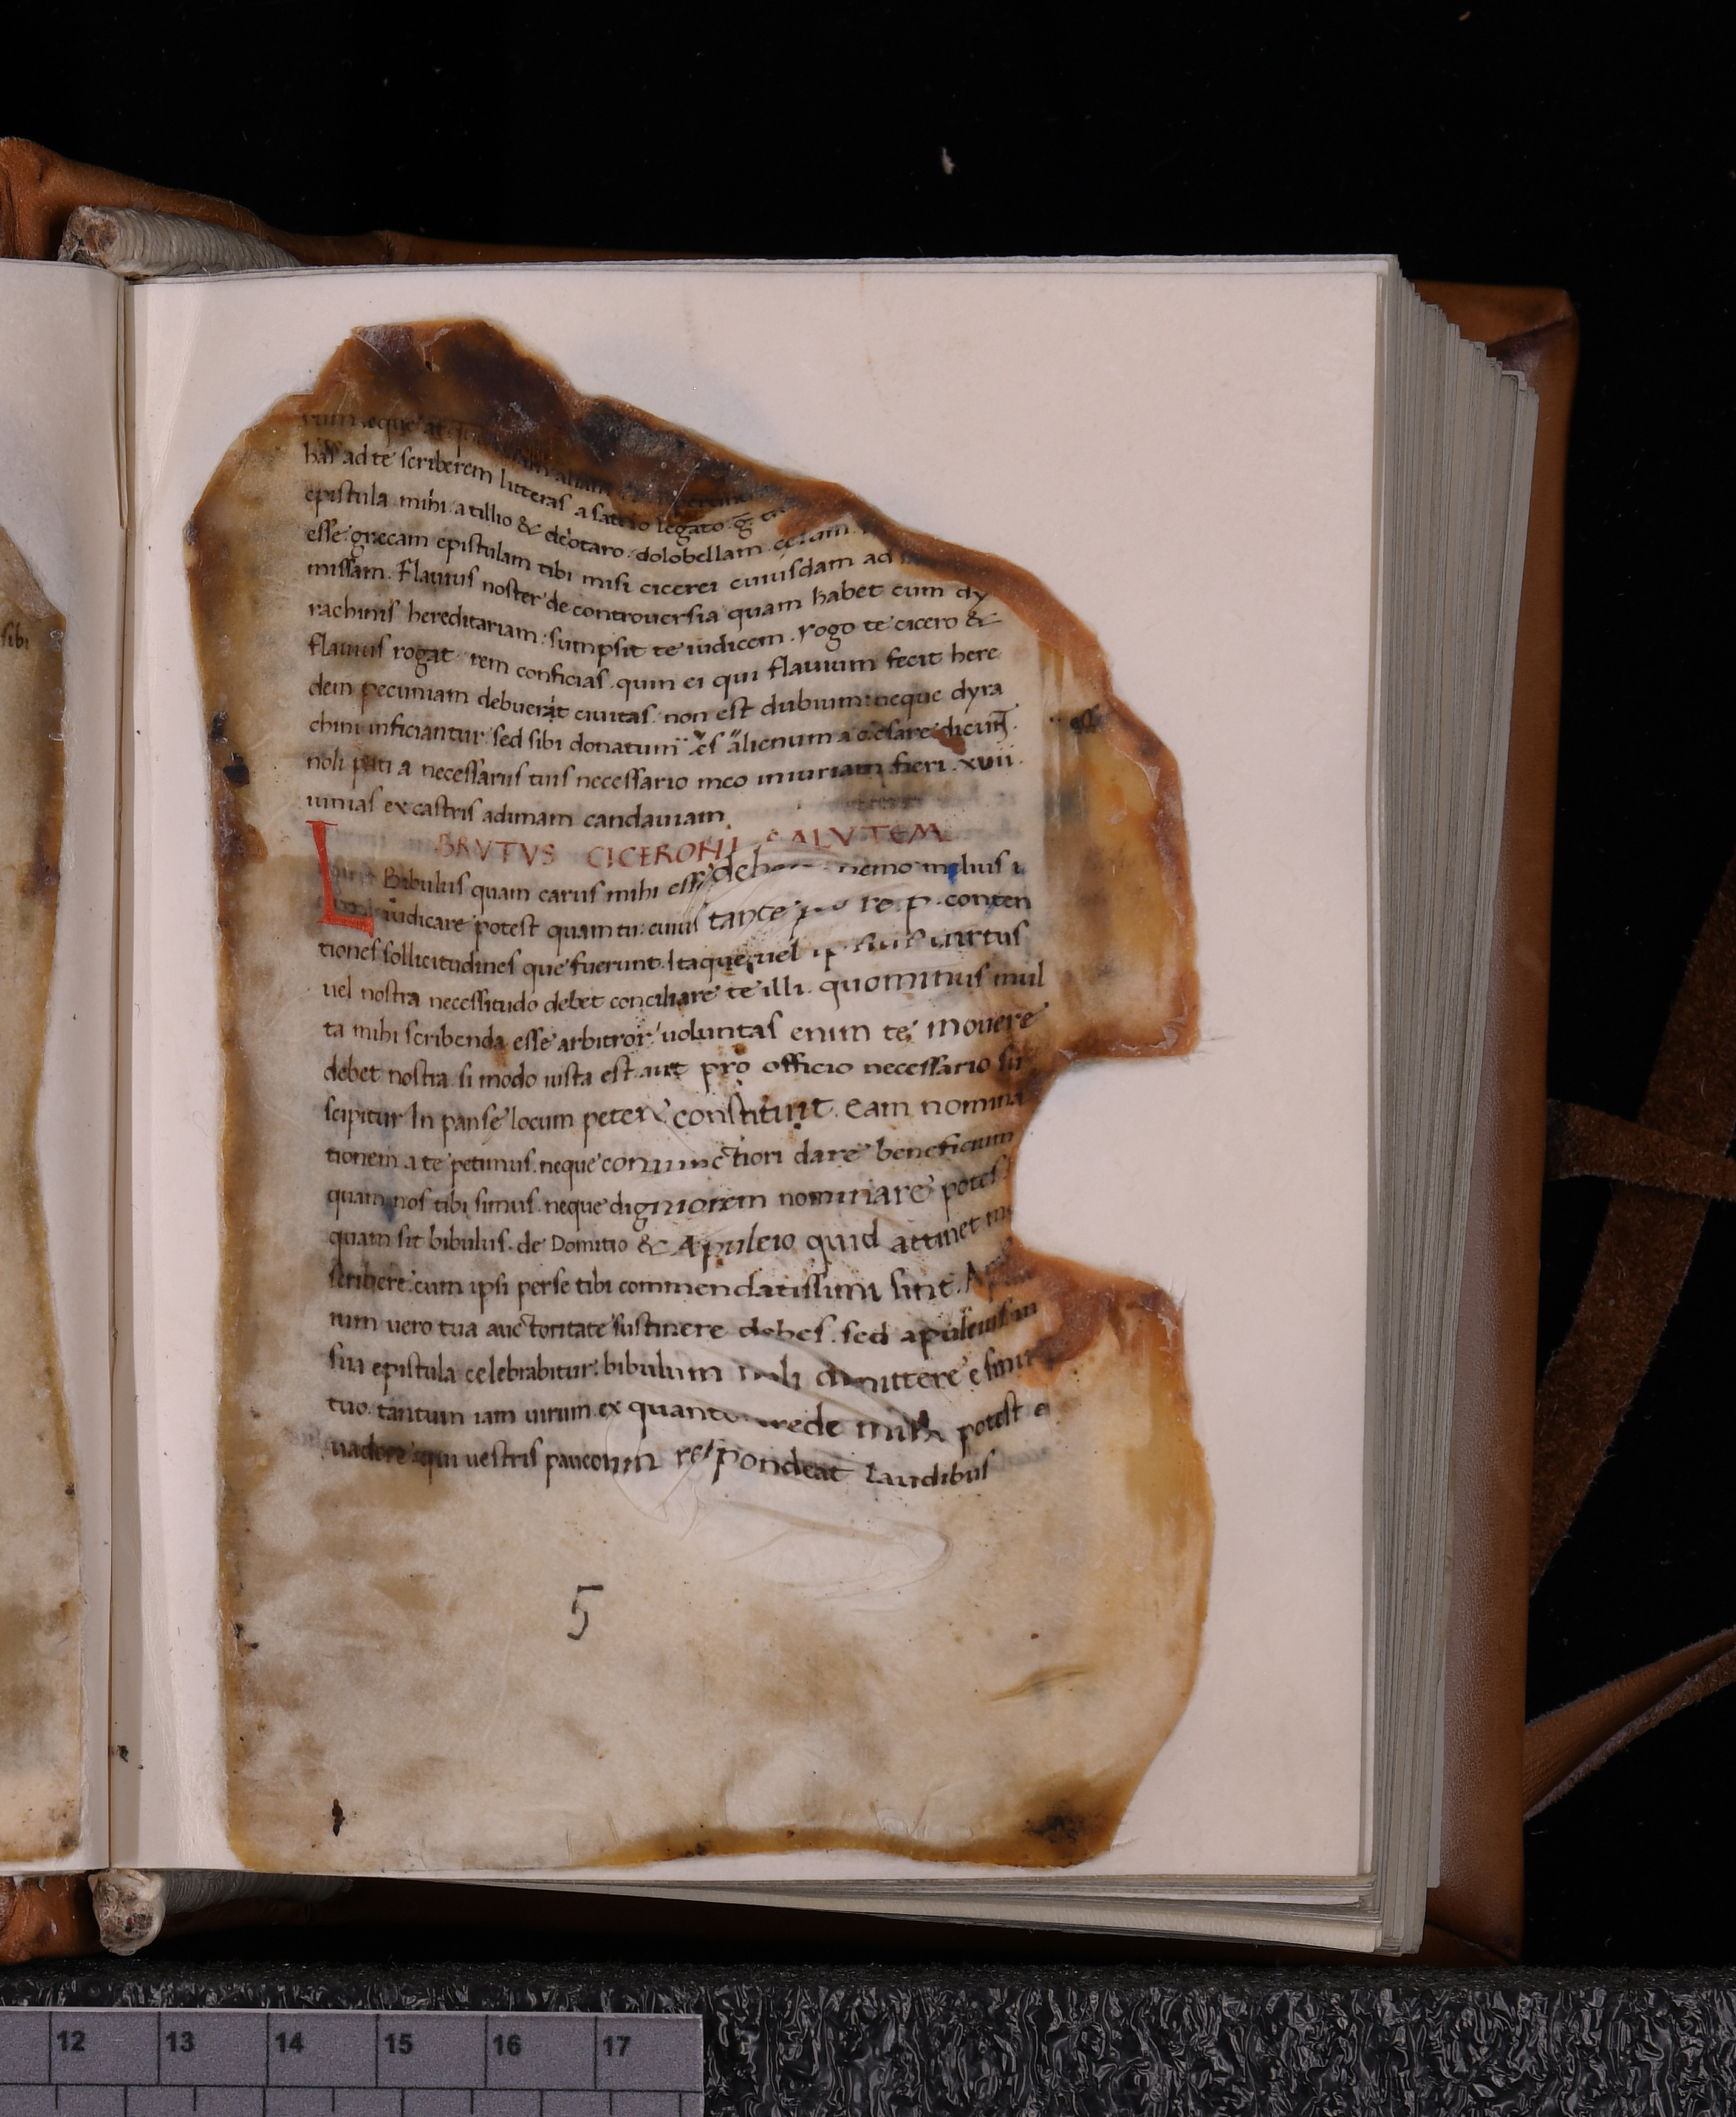 sibi
has ad te scriberem litteras a satrio legato g. tr
epistula mihi a tillio & deotaro. dolobellam cesum
esse grecam epistulam tibi misi cicerei cuiusdam ad
missam. Flauius noster de controuersia quam habet cum dy
rachinis hereditariam: sumpsit te iudicem. rogo te cicero &
flauius rogat rem conficias. quin ei qui flauium fecit here
dem pecuniam debuerit ciuitas. non est dubium: neque dyra
chini inficiantur: sed sibi donatum es alienum a cesare dicunt.
noli pati a necessariis tuis necessario meo iniuriam fieri. xuii.
uinias ex castris ad imam candauiam
BRVTVS CICERONI SALVTEM
L Bibulus quam carus mihi esse debeat nemo melius
iudicare potest quam tu: cuius tante pro re. p. conten
tiones sollicitudines que fuerunt. Itaque uel ipsius uirtus
uel nostra necessitudo debet conciliare te illi. quominus mul
ta mihi scribenda esse arbitror uoluntas enim te mouere
debet nostra si modo iusta est aut pro officio necessario sus
cipitur In panse locum petere constituit. eam nomina
tionem a te petimus. neque coniunctiori dare beneficium
quam nos tibi simus. neque digniorem nominare potes
quam sit bibulus. de Domitio & Apuleio quid attinet me
scribere. cum ipsi per se tibi commendatissimi sint.
rum uero tua auctoritate sustinere debes. sed apuleius in
sua epistula celebrabitur. bibulum noli dimittere e sinu
tuo. tantum iam uirum ex quanto crede mihi potest e
uadere qui uestris paucorum respondeat laudibus
esse
5
12 13 14 15 16 17